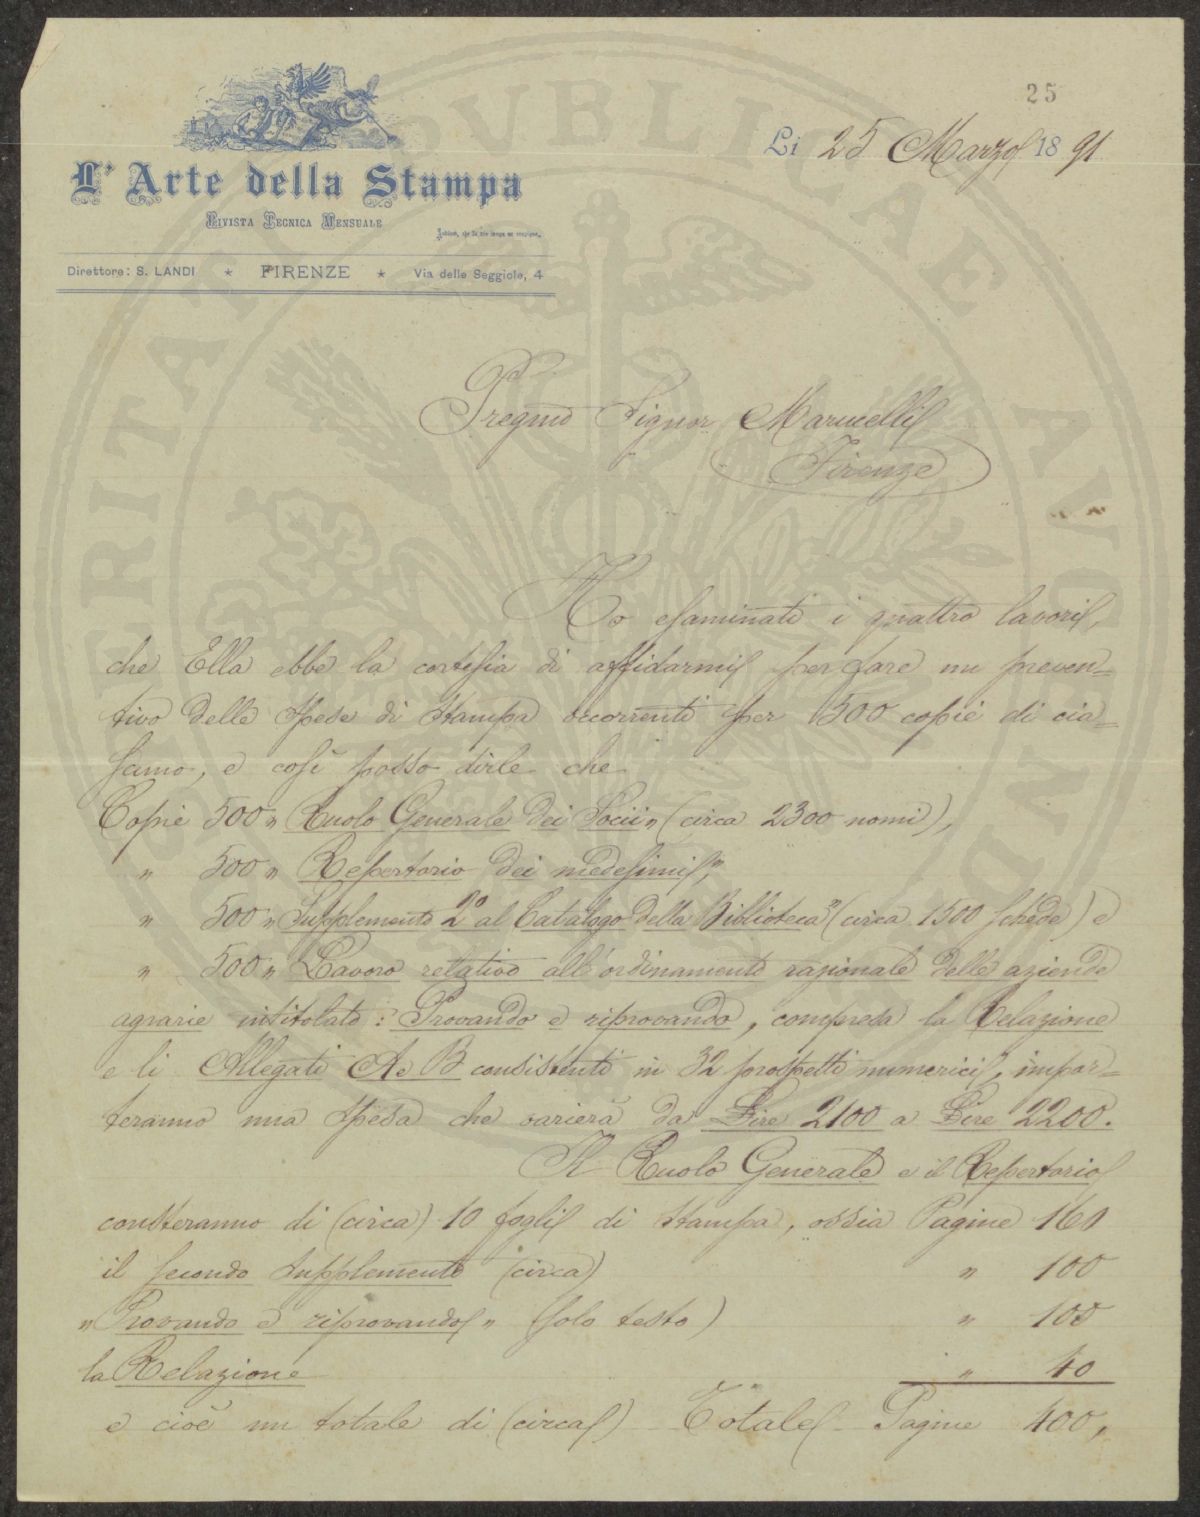 25
Li 25 Marzo 1891
L'Arte della Stampa
Rivista Tecnica Mensuale
Direttore: S. LANDI * FIRENZE * Via delle Seggiole, 4
Pregmo Signor Marucelli
Firenze
Ho esaminati i quattro lavori,
che Ella ebbe la cortesia di affidarmi per fare un preven=
tivo delle spese di stampa occorrenti per 500 copie di cia=
scuno, e così posso dirle che
Copie 500 „ Ruolo Generale dei Socii „ (circa 2300 nomi),
„ 500 „ Repertorio dei medesimi „,
„ 500 „ Supplemento 2º al Catalogo della Biblioteca „ (circa 1500 schede) e
„ 500 „ Lavoro relativo all'ordinamento razionale delle aziende
agrarie intitolato: Provando e riprovando, compresa la Relazione
e li Allegati A e B consistenti in 32 prospetti numerici, impor=
teranno una spesa che varierà da Lire 2100 a Lire 2200.
Il Ruolo Generale e il Repertorio
consteranno di (circa) 10 fogli di stampa, ossia Pagine 160
il secondo supplemento (circa) „ 100
„ Provando e riprovando „ (solo testo) „ 100
la Relazione „ 40
e cioè un totale di (circa) Totale Pagine 400,
PUBLICAE